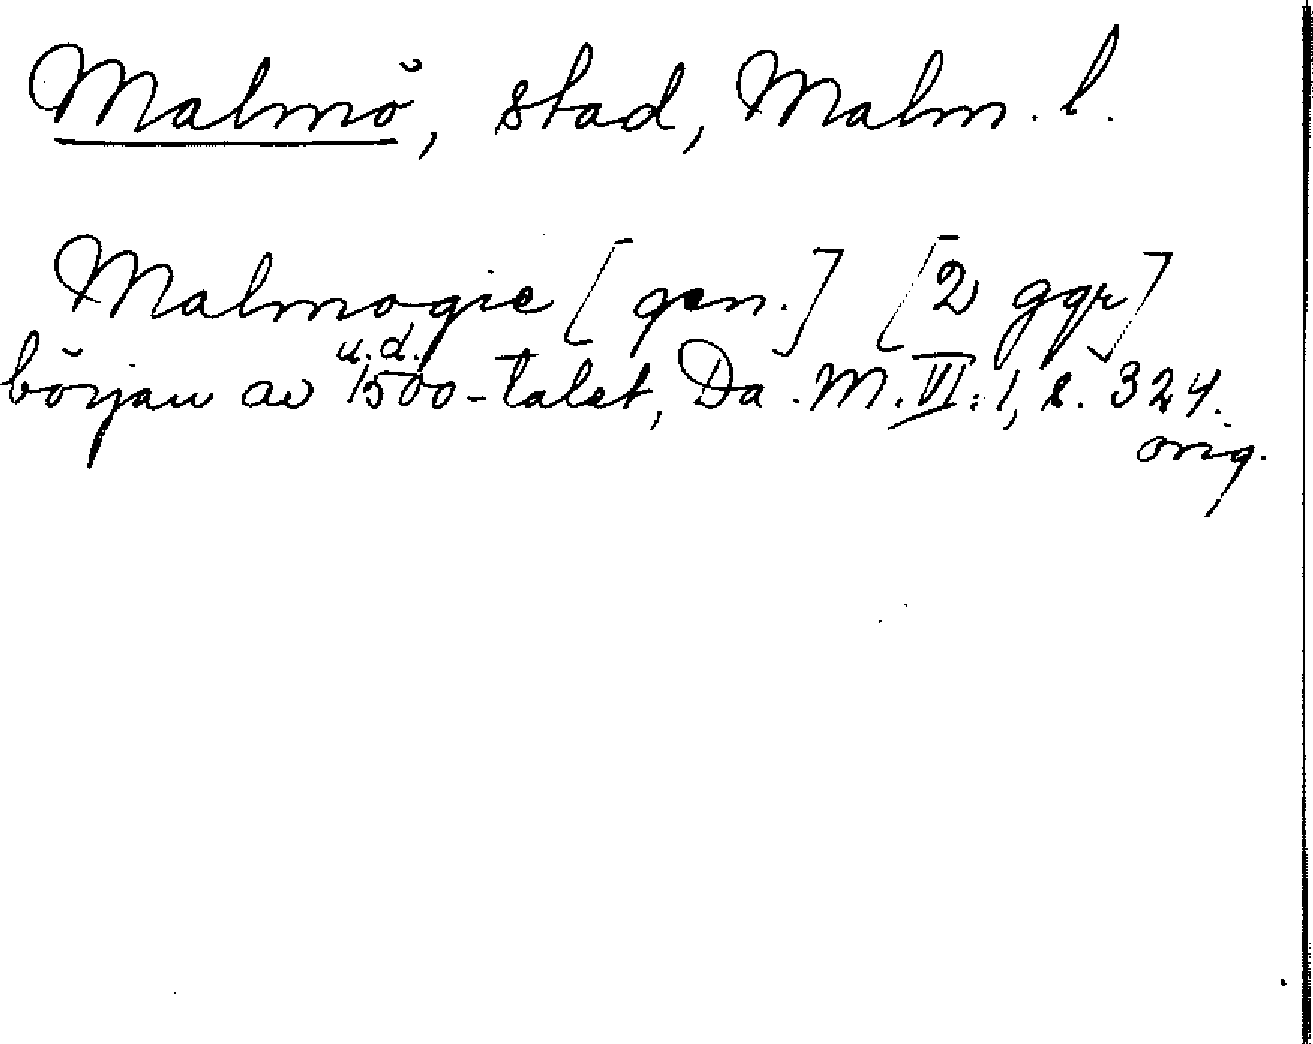 Malmö, stad, Malm. l.
Malmogie [gen.] [2 ggr]
u.d.
början av 1500-talet, Da. M. VI: 1, s. 324.
orig.